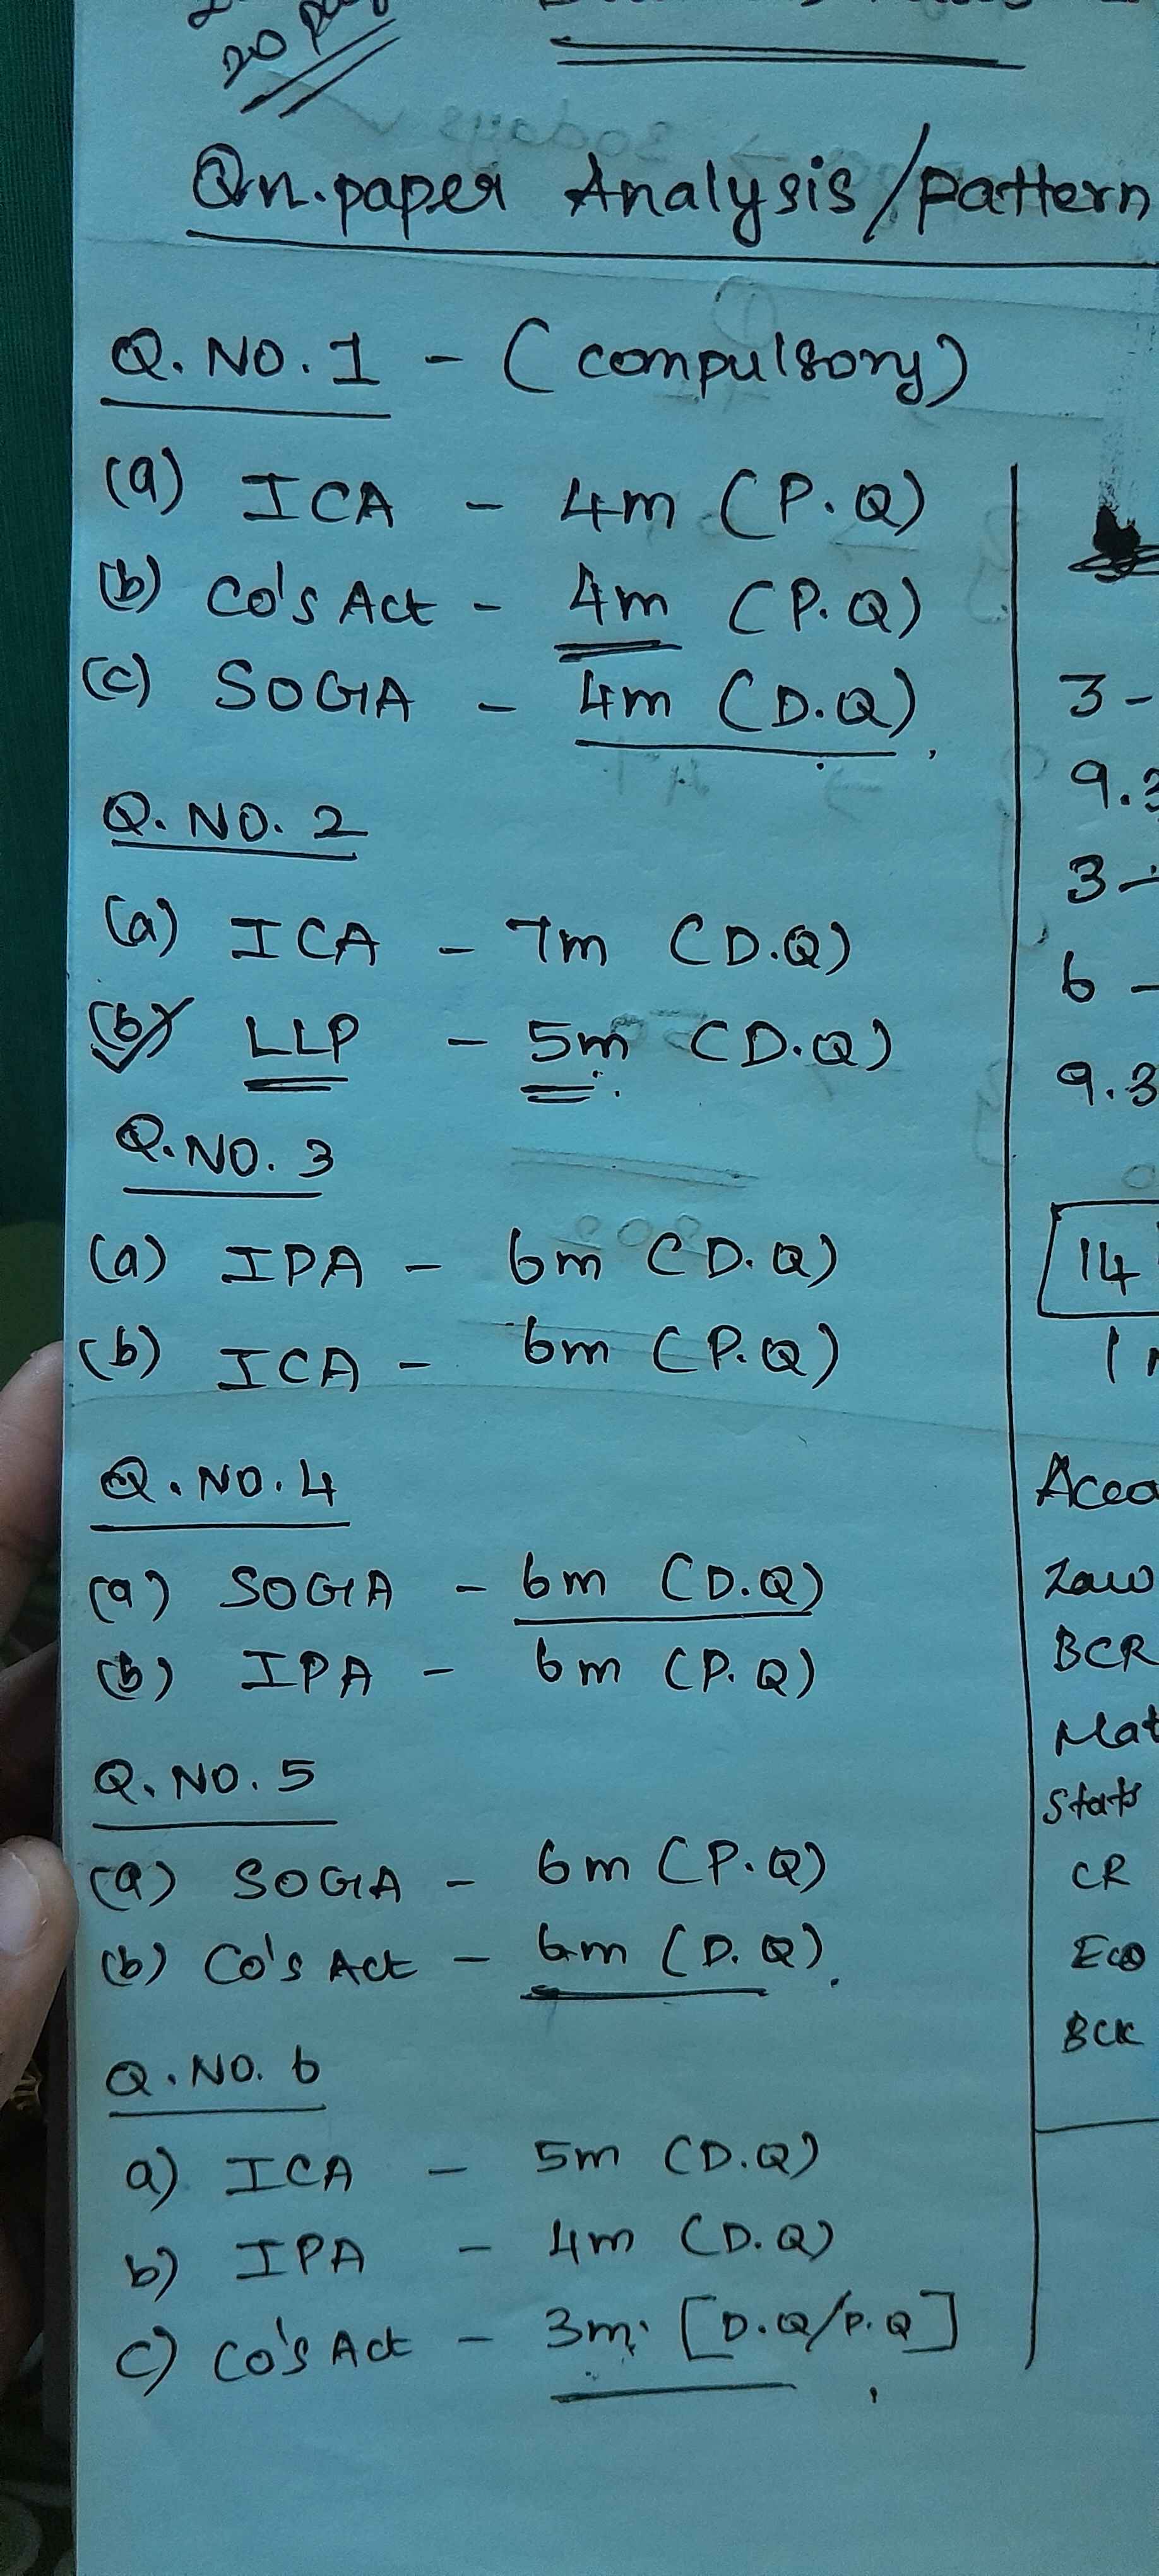 20
Qn.paper Analysis/pattern
Q.NO.1 - (compulsory)
(a) ICA - 4m (P.Q)
(b) Co's Act - 4m (P.Q)
(c) SOGA - 4m (D.Q)
Q.NO.2
(a) ICA - 7m (D.Q)
(b) LLP - 5m (D.Q)
Q.NO.3
(a) IPA - 6m (D.Q)
(b) ICA - 6m (P.Q)
Q.NO.4
(a) SOGA - 6m (D.Q)
(b) IPA - 6m (P.Q)
Q.NO.5
(a) SOGA - 6m (P.Q)
(b) Co's Act - 6m (D.Q)
Q.NO.6
a) ICA - 5m (D.Q)
b) IPA - 4m (D.Q)
c) Co's Act - 3m [D.Q/P.Q]
3 -
9.3
3 -
6 -
9.3
14
Law
BCR
Mat
Stats
CR
Eco
BCK